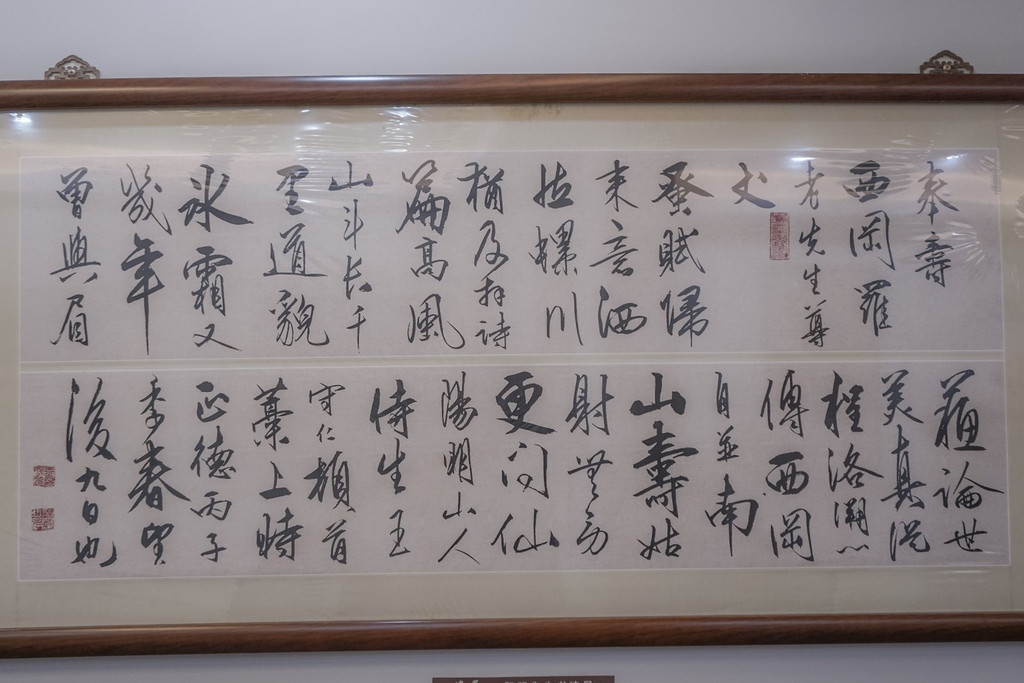 奉壽
西岡羅
老先生尊
丈
蚤賦歸
來意洒
然螺川
猶及拜詩
篇高風
山斗長千
里道貌
氷霜又
幾年
曾與眉
蘇論世
美真從
程洛溯心
傳西岡
自並南
山壽姑
射無勞
更問仙
陽明山人
侍生王
守仁頓首
藁上時
正德丙子
季春望
後九日也